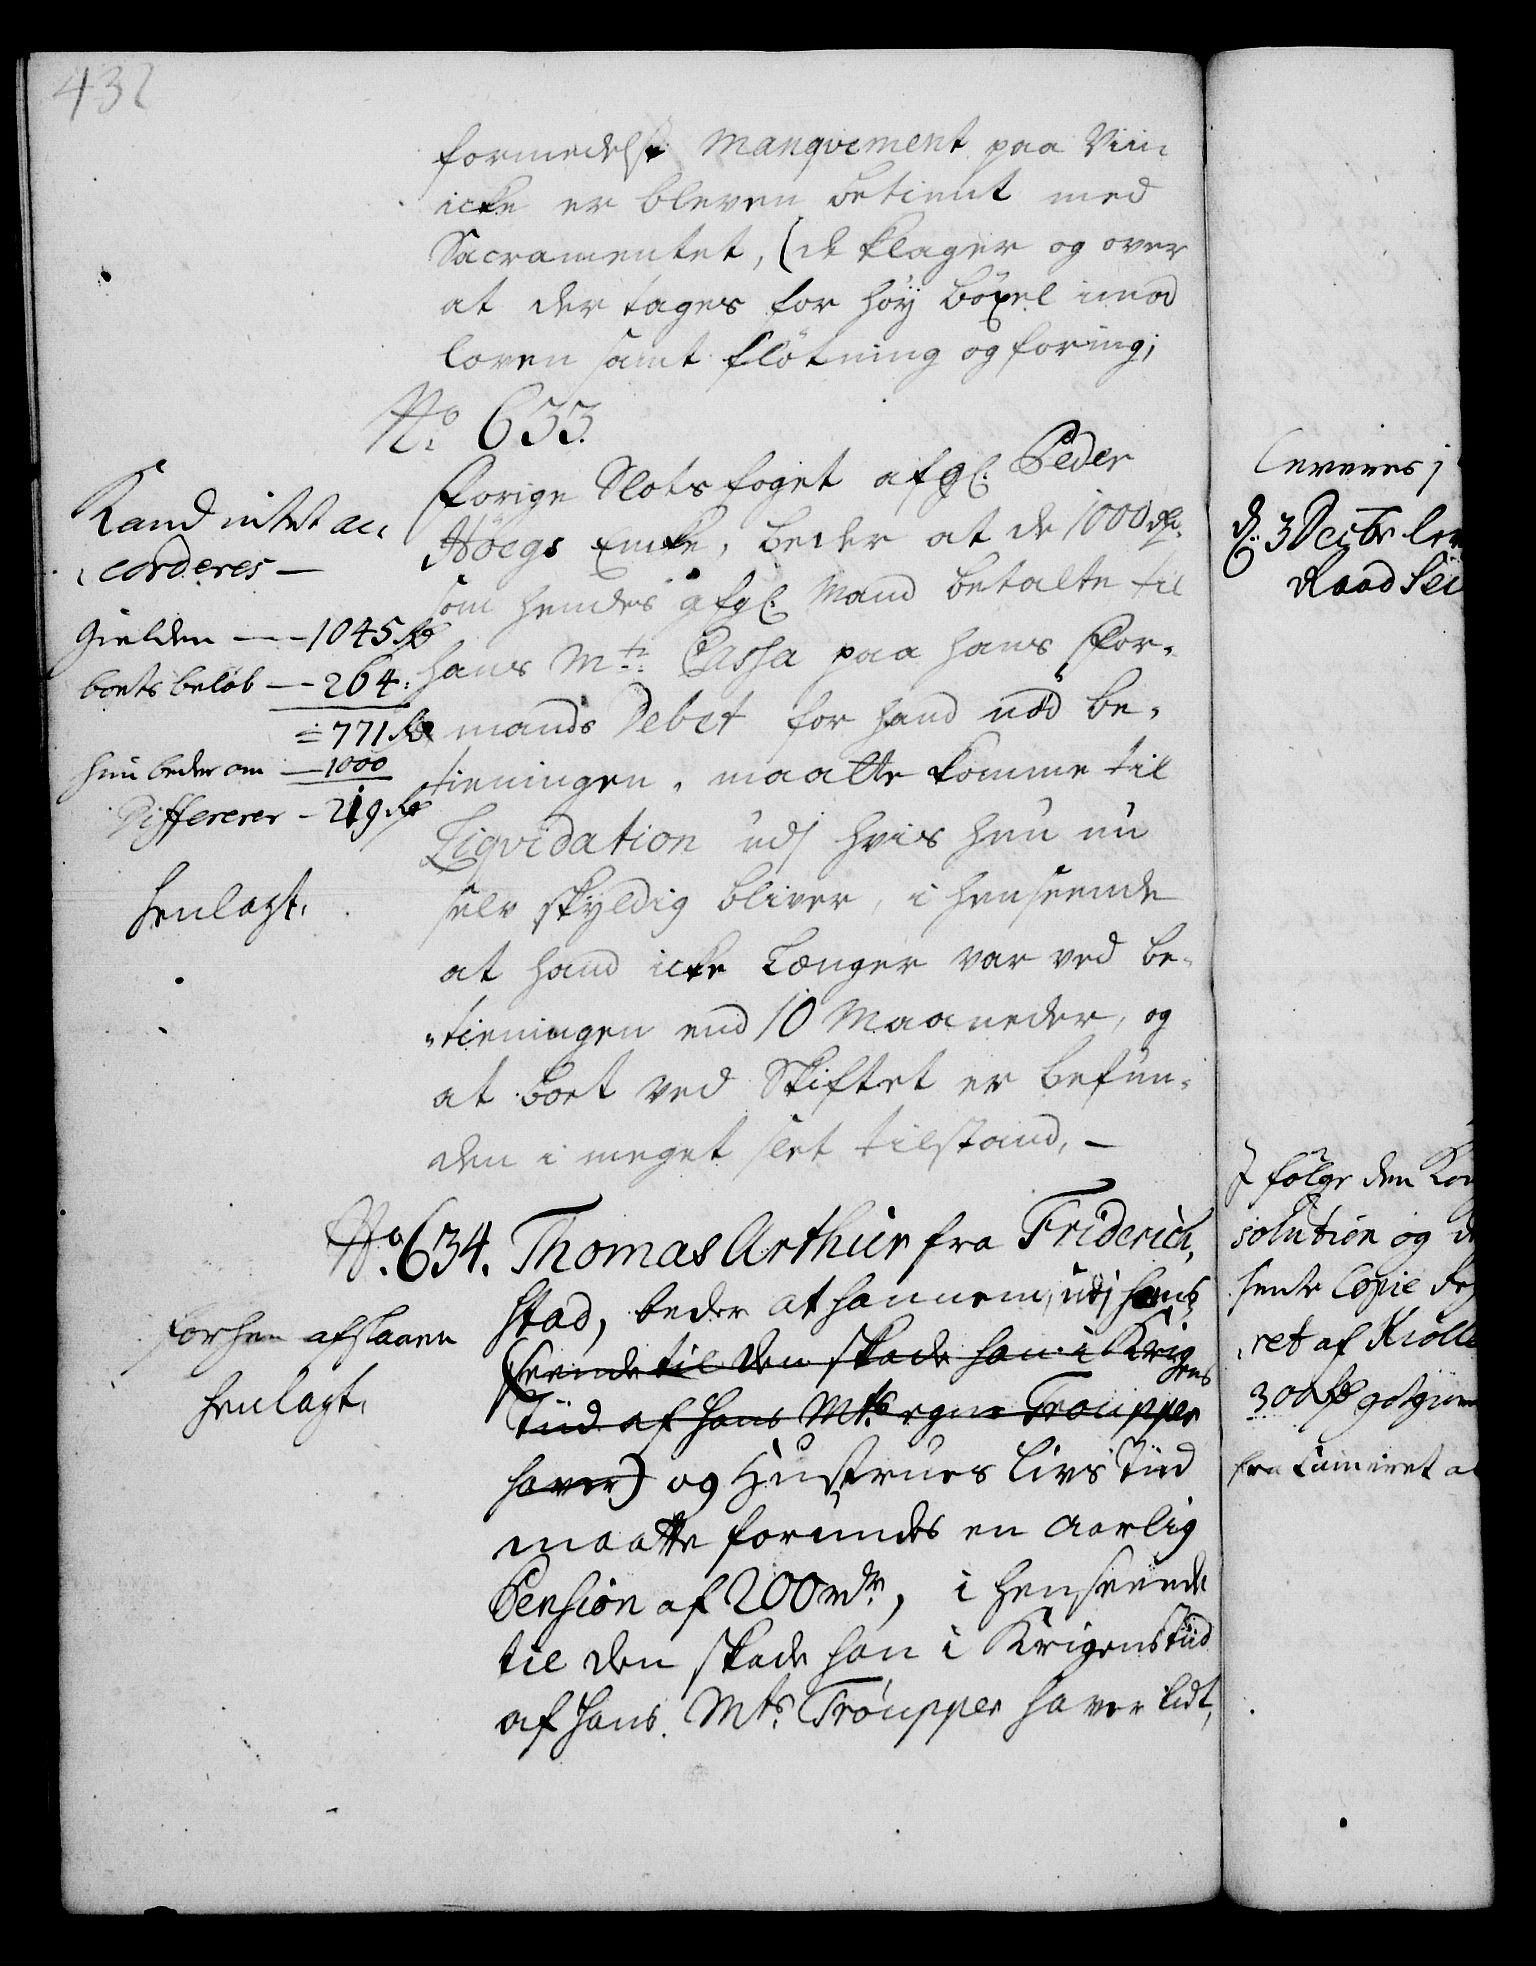 432
formedelst Manqvement paa Viin
icke er bleven betient med
Sacramentet, (de klager og over
at der tages for høy böxel imod
loven samt fløtning og foring;
No. 633.
Forige Slots foget afgl. Peder
Höegs Encke, beder at de 1000 Rdr.
som hendes afgl. Mand betalte til
hans Mts. Cassa paa hans For-
mands Debet for hand nød be-
tieningen, maatte komme til
Liqvidation udj hvis hun nu
selv skyldig bliver, i henseende
at hand icke længer var ved be-
tieningen end 10 Maaneder, og
at boet ved Skiftet er befun-
den i meget slet tilstand, -
Kand intet ac-
corderes -
Gielden - - 1045 Rdr
boets beløb - - 264:
= 771 Rdr
hun beder om - 1000
Differerer - 219 Rdr
henlagt.
No. 634. Thomas Arthur fra Friderich-
stad, beder at hannem, udj hans
(seende til den skade han i Krigens
Tiid af hans Mts egne Troupper
haver) og Hustrues livs Tiid
maatte forundes en aarlig
Pension af 200 rdr., i henseende
til den skade han i Krigens tiid
af hans Mts. Troupper haver lidt,
forhen afslaaen
henlagt.
leveres j
d. 3 Decbr
Raad
J følge den
solution og
sente Copie
ret af
300 Rdr
fra Cameret